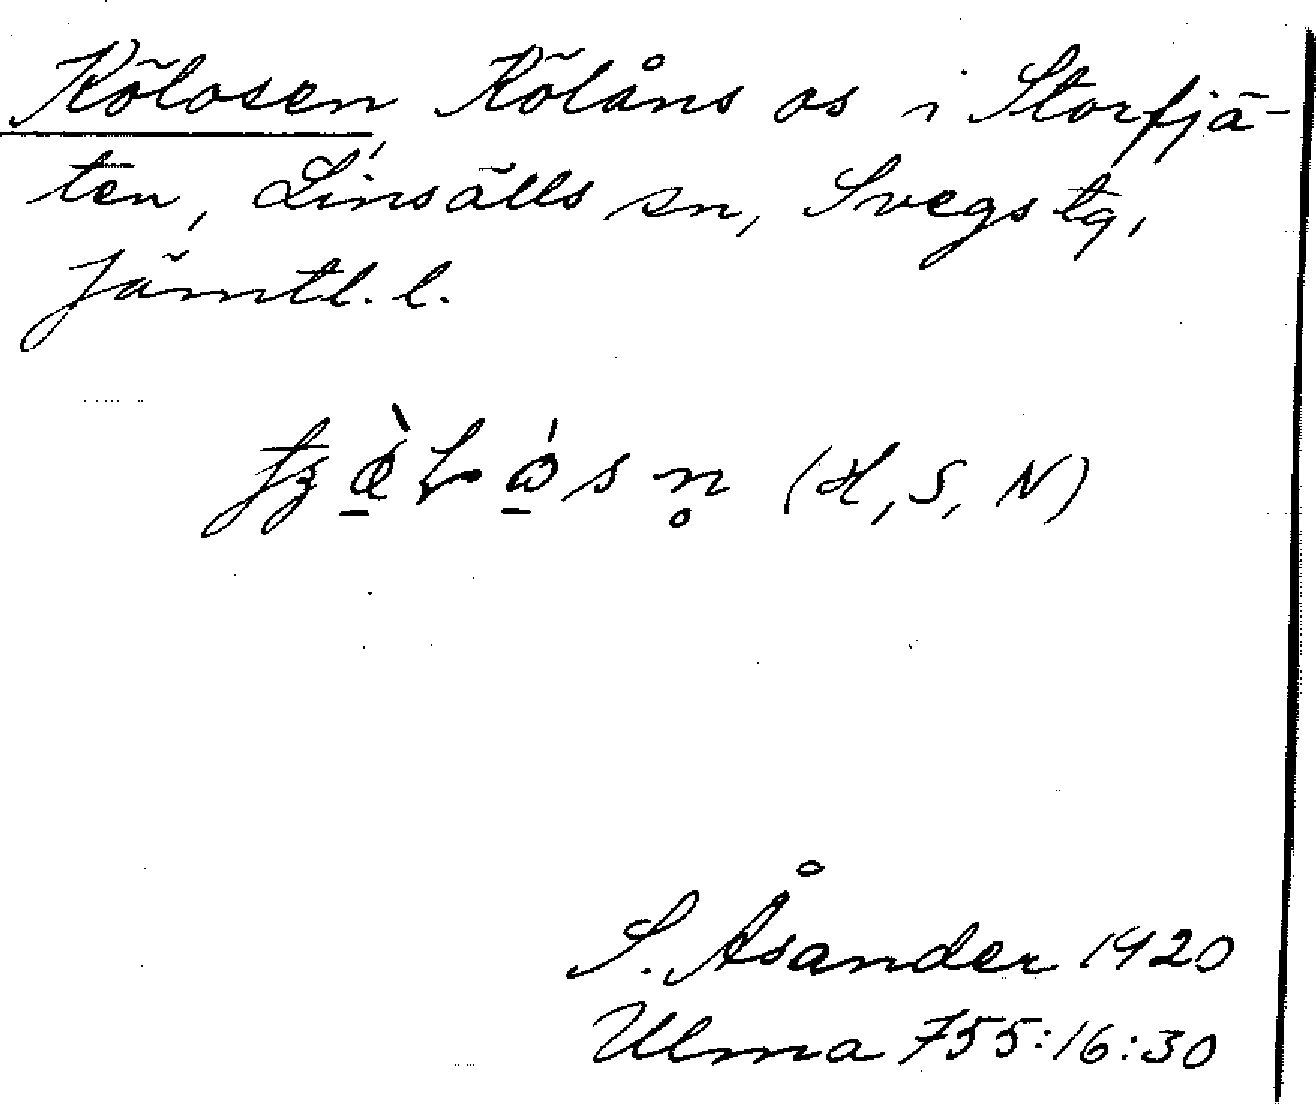 Kölosen Kölåns os i Storfjä-
ten, Linsälls sn, Svegs tg,
Jämtl. l.
(H, S, N)
S. Åsander 1920
Ulma 755:16:30